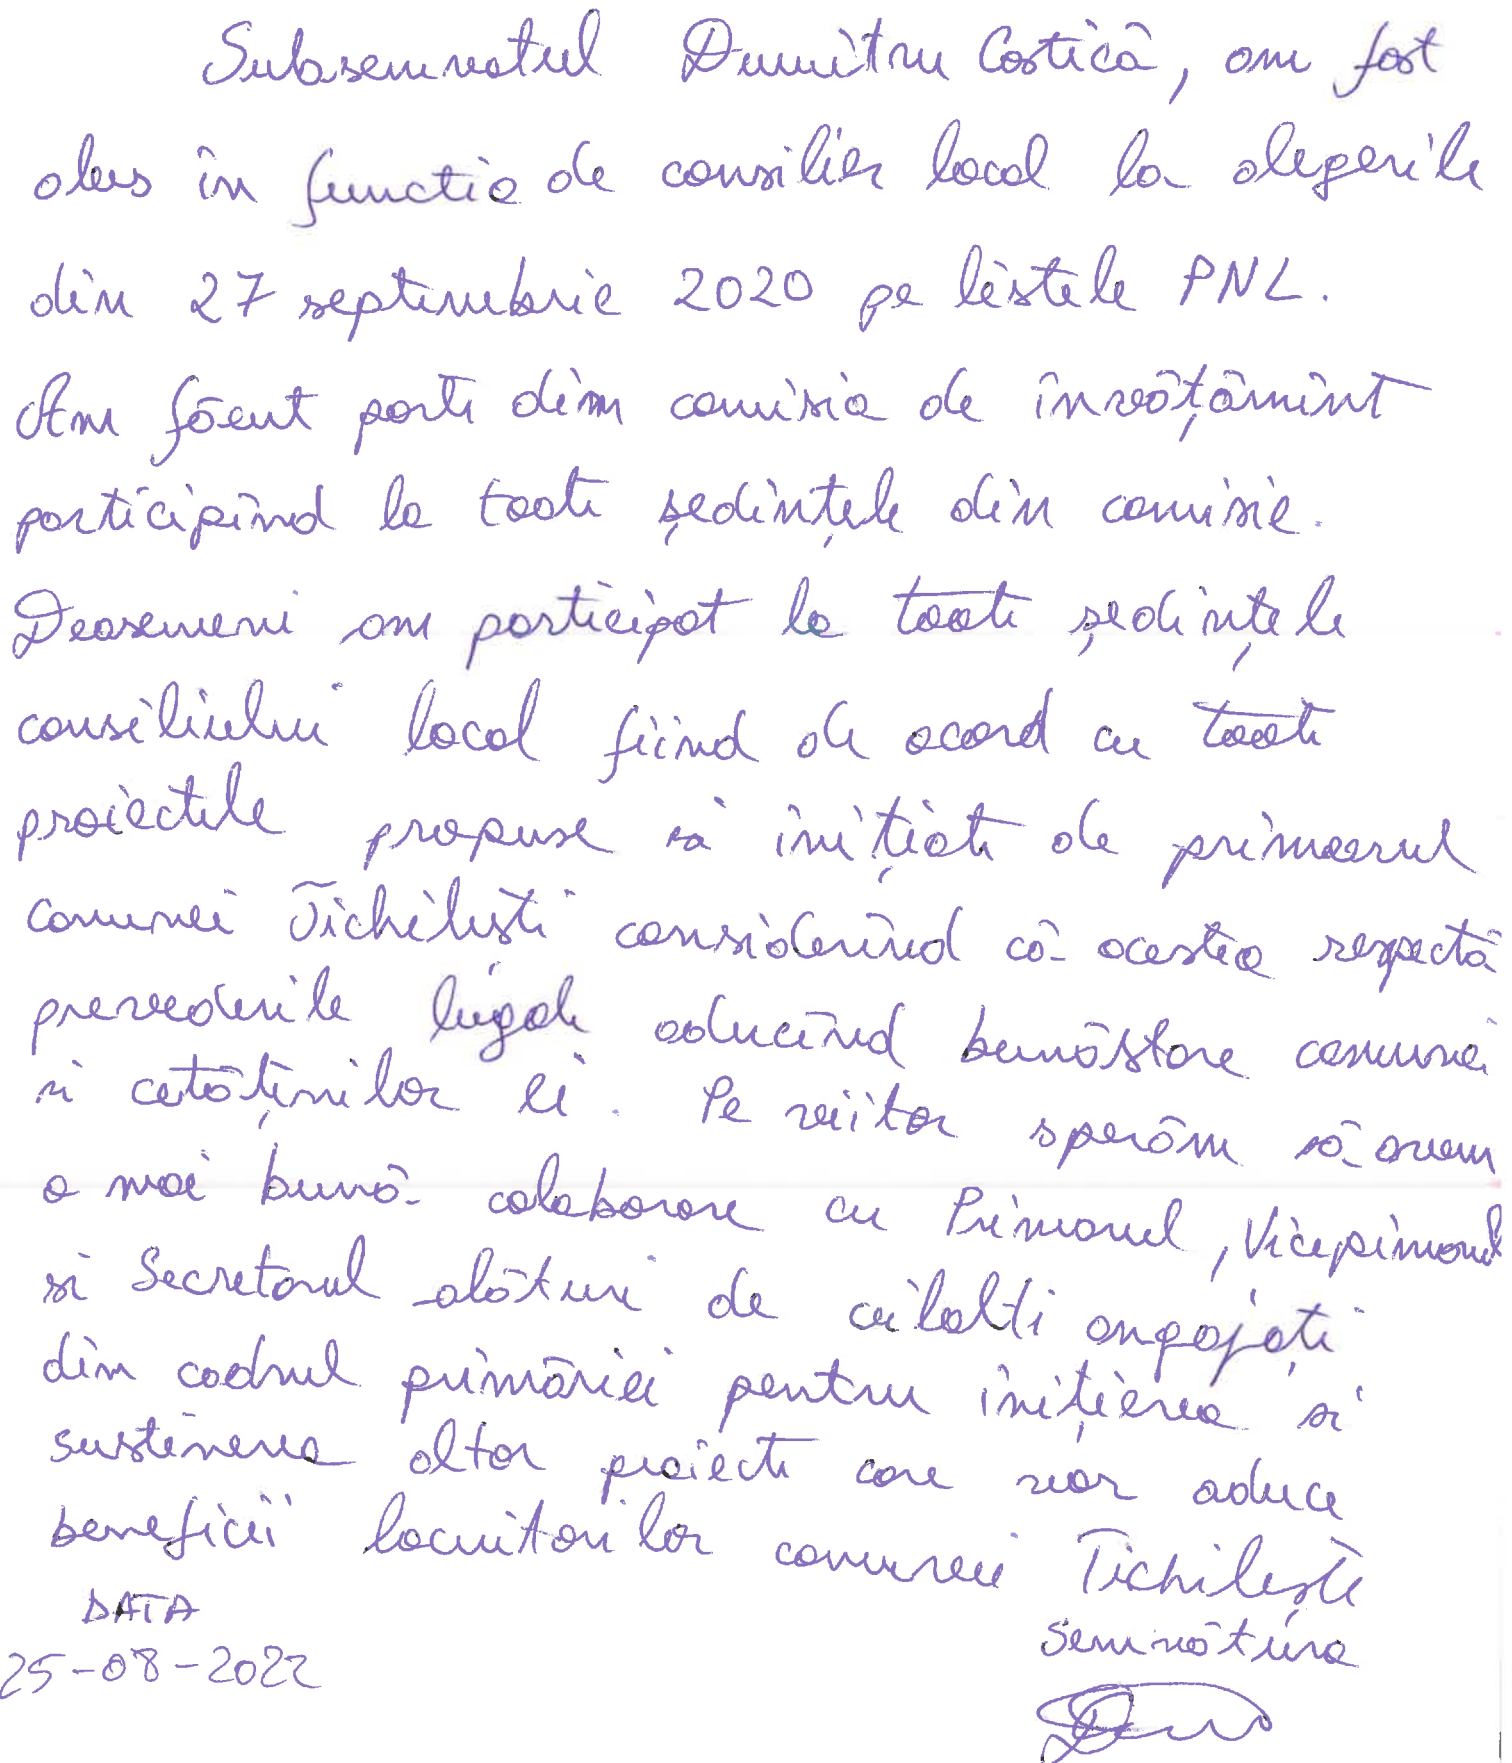 Subsemnatul Dumitru Costică, am fost
ales în functia de consilier local la alegerile
din 27 septembrie 2020 pe listele PNL.
Am făcut parte dim comisia de învățămînt
participînd la toate ședințele din comisie.
Deasemeni am participat la toate ședințele
consiliului local fiind de acord cu toate
proiectele propuse si inițiate de primaarul
comunei Tichilești considerînd că acestea respectă
prevederile legale aducînd bunăstare comunei
si cetățenilor ei. Pe viitor sperăm să avem
o mai bună colaborare cu Primarul, Viceprimarul
si Secretarul alături de ceilalti angajați
dim cadrul primăriei pentru inițierea si
sustinerea altor proiecte care vor aduce
beneficii locuitorilor comunei Tichilești
DATA
Semnătura
25-08-2022